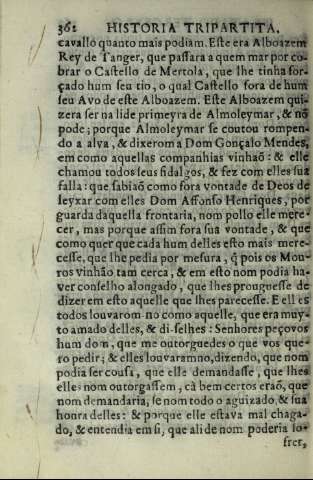 362 HISTORIA TRIPARTITA.
cavallo quanto mais podiam. Este era Alboazem
Rey de Tanger, que passara a quem mar por co-
brar o Castello de Mertola, que lhe tinha for-
çado hum seu tio, o qual Castello fora de hum
seu Avo de este Alboazem. Este Alboazem qui-
zera ser na lide primeyra de Almoleymar, & nõ
pode; porque Almoleymar se coutou rompen-
do a alva, & dixerom a Dom Gonçalo Mendes,
em como aquellas companhias vinhaõ: & elle
chamou todos seus fidalgos, & fez com elles sua
falla: que sabiaõ como fora vontade de Deos de
leyxar com elles Dom Affonso Henriques, por
guarda daquella frontaria, nom pollo elle mere-
cer, mas porque assim fora sua vontade, & que
como quer que cada hum delles esto mais mere-
cesse, que lhe pedia por mesura, q̃ pois os Mou-
ros vinhão tam cerca, & em esto nom podia ha-
ver conselho alongado, que lhes prouguesse de
dizer em esto aquelle que lhes parecesse. E elles
todos louvarom-no como aquelle, que era muy-
to amado delles, & di-selhes: Senhores peçovos
hum dom, que me outorguedes o que vos que-
ro pedir; & elles louvaramno, dizendo, que nom
podia ser cousa, que elle demandasse, que lhes
elles nom outorgassem, cà bem certos eraõ, que
nom demandaria, se nom todo o aguizado, & sua
honra delles: & porque elle estava mal chaga-
do, & entendia em si, que ali de nom poderia so-
frer,